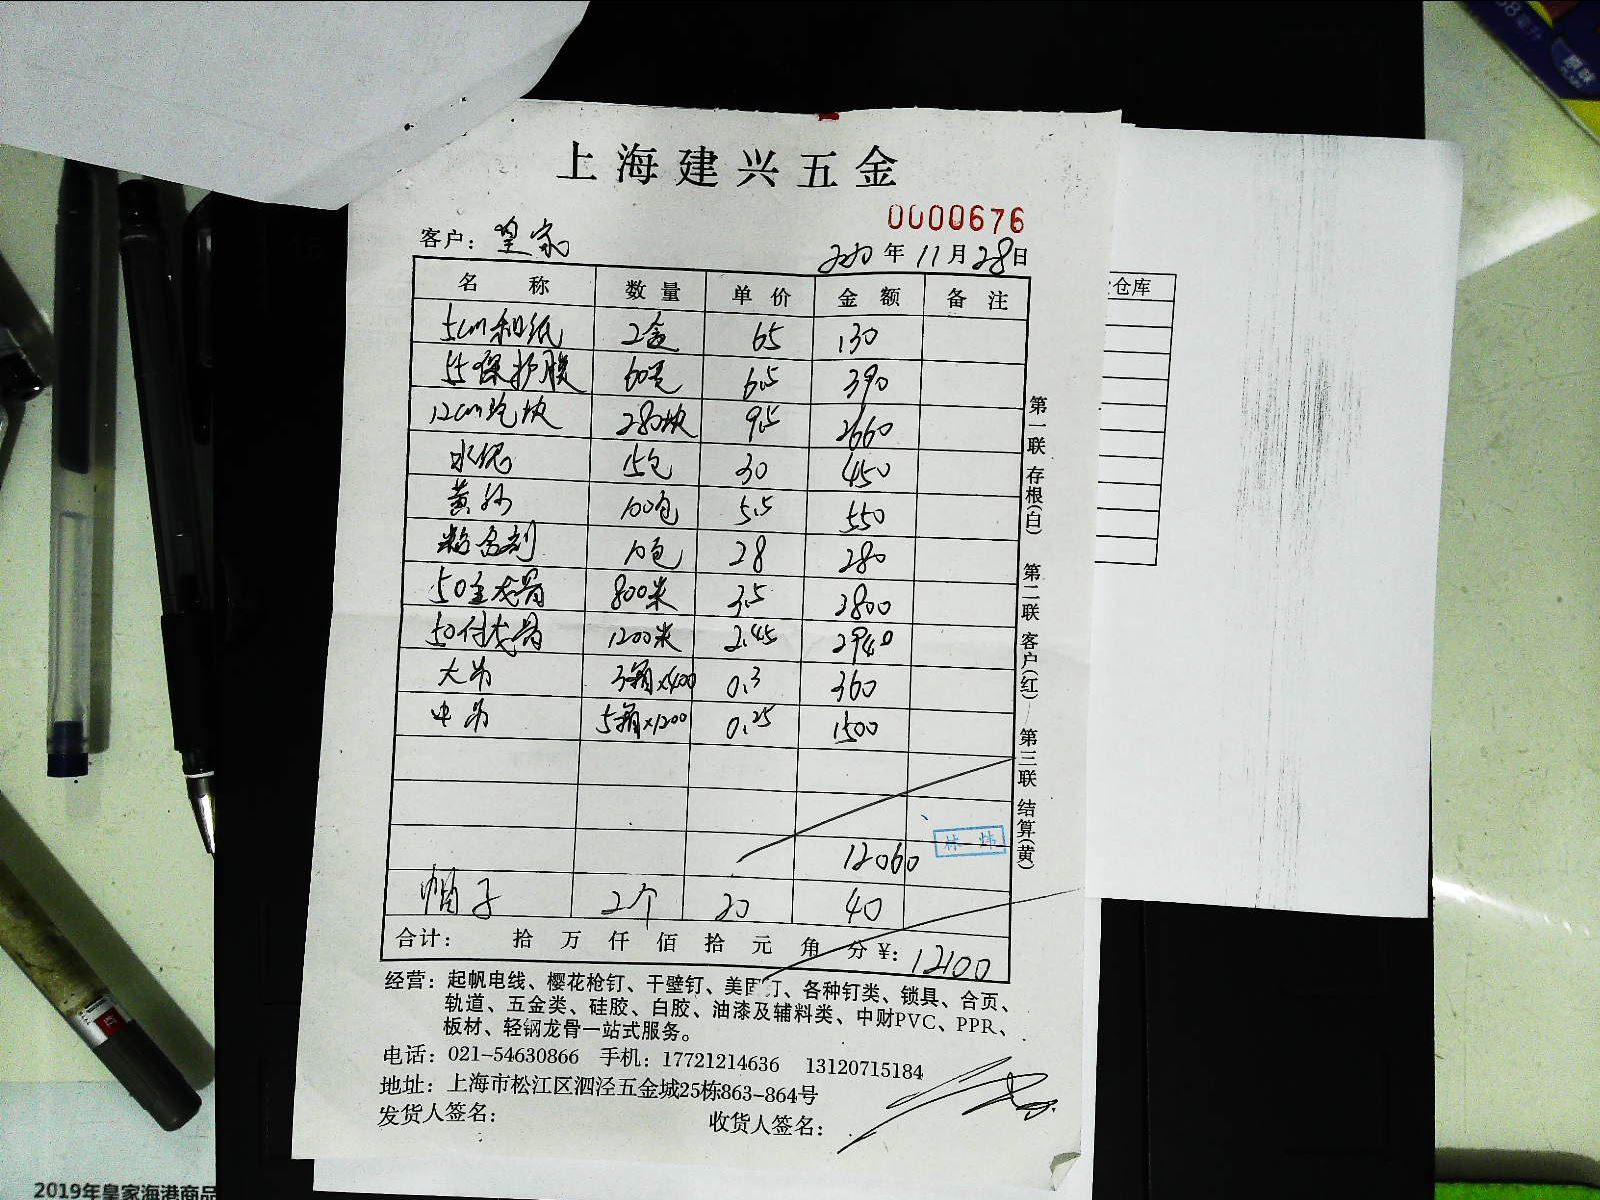 上海建兴五金
0000676
客户：皇家
2020年11月28日
名称 数量 单价 金额 备注
5cm和纸 2盒 65 130
保护膜 60卷 6.5 390
12cm 280块 9.5 2660
水泥 15包 30 450
黄沙 100包 5.5 550
粘合剂 10包 28 280
50主龙骨 800米 3.5 2800
50付龙骨 1200米 2.45 2940
大吊 3箱×400 0.3 360
中吊 5箱×1200 0.25 1500
12060
林炜
帽子 2个 20 40
合计： 拾万仟佰拾元角分￥：12100
第一联 存根(白) 第二联 客户(红) 第三联 结算(黄)
经营：起帆电线、樱花枪钉、干壁钉、美固钉、各种钉类、锁具、合页、
轨道、五金类、硅胶、白胶、油漆及辅料类、中财PVC、PPR、
板材、轻钢龙骨一站式服务。
电话：021-54630866 手机：17721214636 13120715184
地址：上海市松江区泗泾五金城25栋863-864号
发货人签名： 收货人签名：
仓库
原味
2019年皇家海港商品